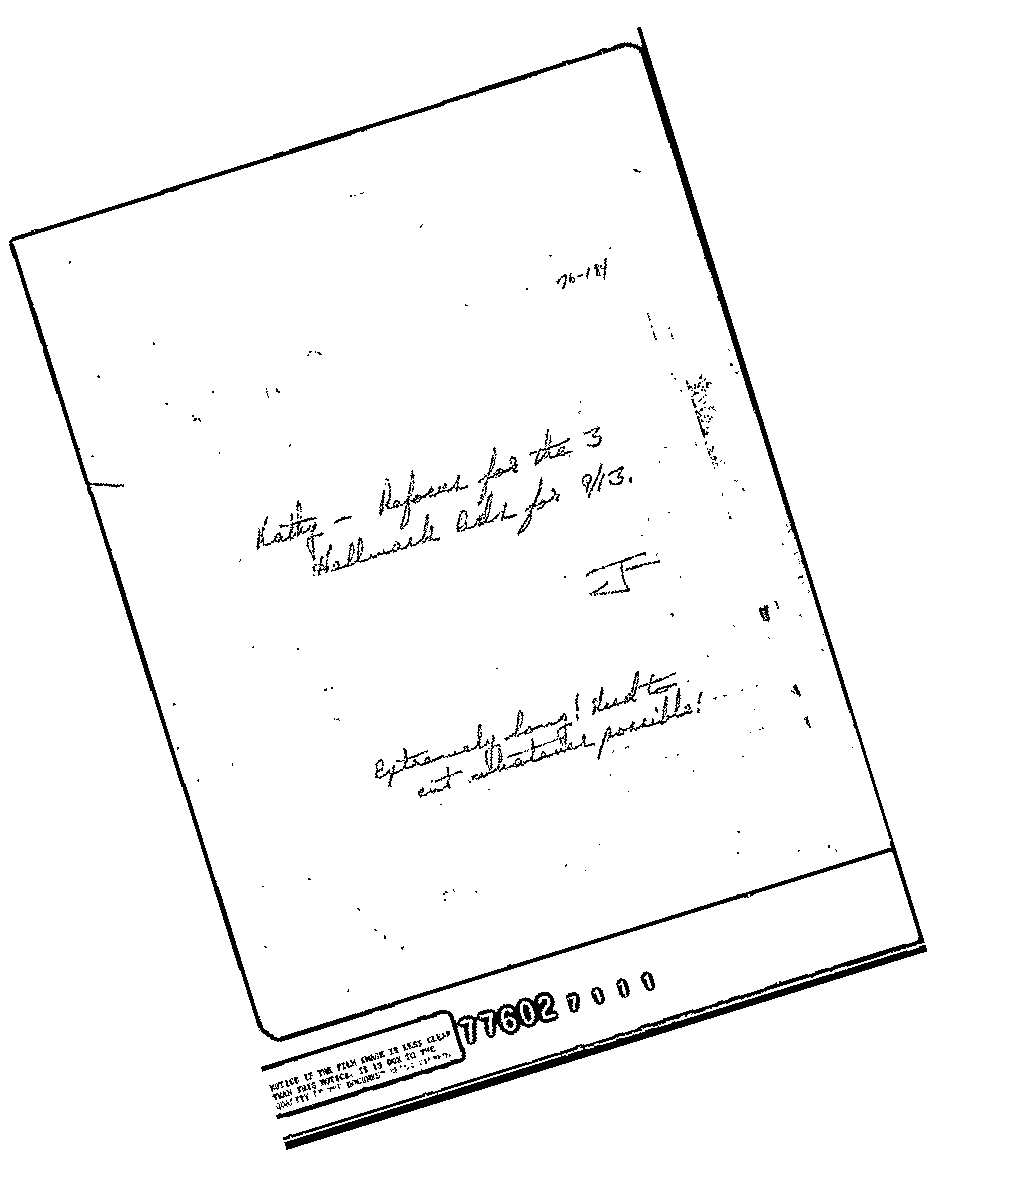 76-184
Kathy - Refocus for the 3
Hallmark Ads for 9/13.
J
Extremely long! Need to
cut whatever possible!
776027000
NOTICE IF THE FILM IMAGE IS LESS CLEAR
THAN THIS NOTICE, IT IS DUE TO THE
QUALITY OF THE DOCUMENT